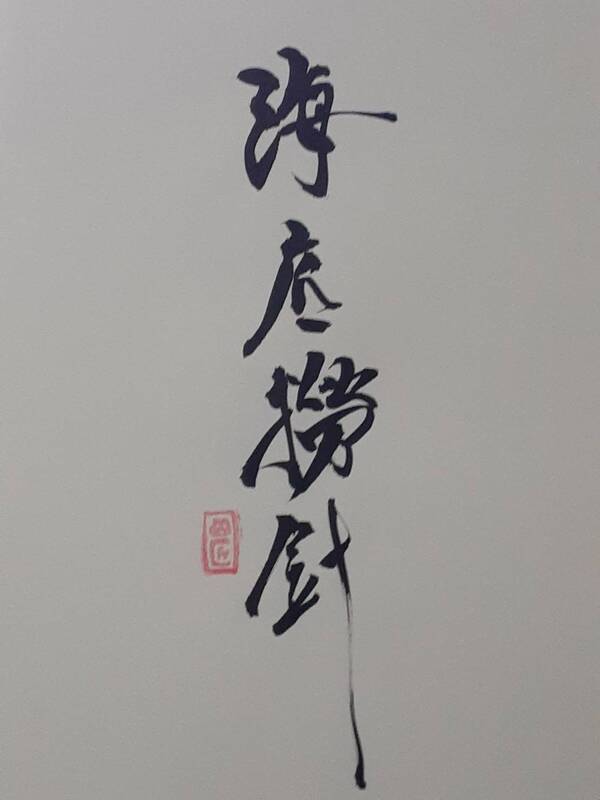 海底撈針